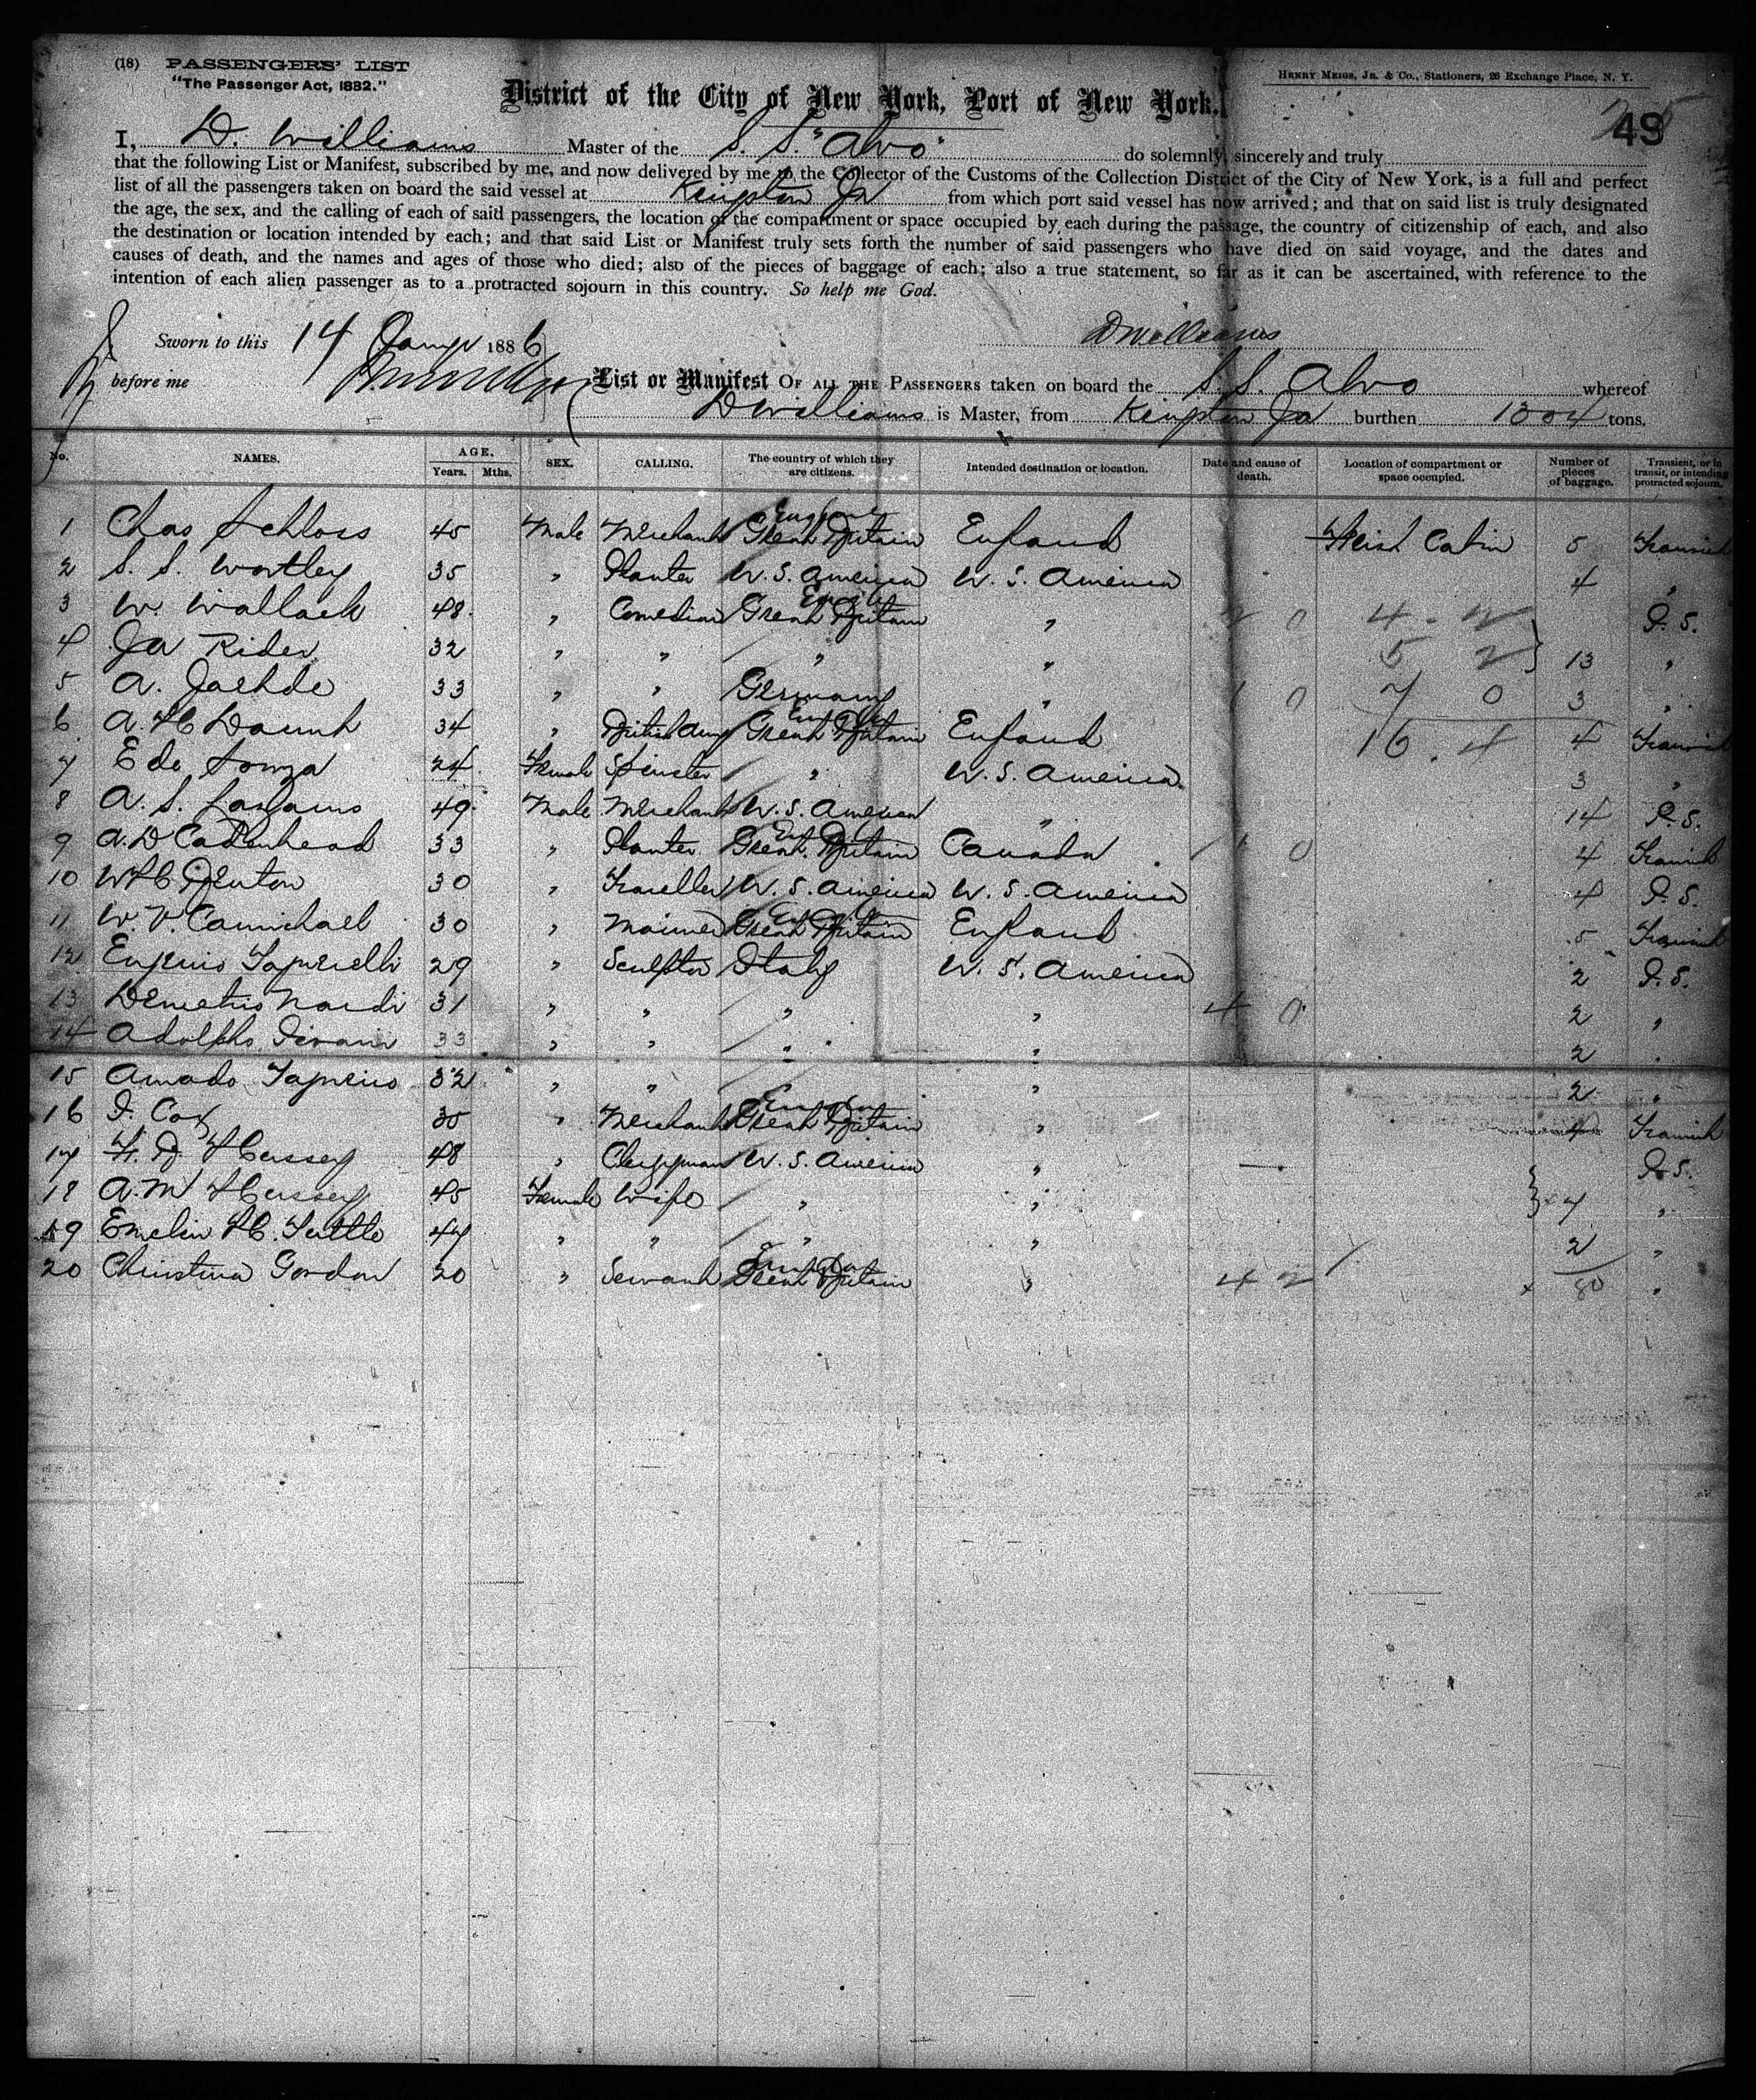 (18) PASSENGERS' LIST
"The Passenger Act, 1882."
HENRY MEIGS, JR. & CO., Stationers, 26 Exchange Place, N. Y.
District of the City of New York, Port of New York.
49
I, D. Williams Master of the S. S. "Alvo" do solemnly, sincerely and truly
that the following List or Manifest, subscribed by me, and now delivered by me to the Collector of the Customs of the Collection District of the City of New York, is a full and perfect
list of all the passengers taken on board the said vessel at Kingston Ja from which port said vessel has now arrived; and that on said list is truly designated
the age, the sex, and the calling of each of said passengers, the location of the compartment or space occupied by each during the passage, the country of citizenship of each, and also
the destination or location intended by each; and that said List or Manifest truly sets forth the number of said passengers who have died on said voyage, and the dates and
causes of death, and the names and ages of those who died; also of the pieces of baggage of each; also a true statement, so far as it can be ascertained, with reference to the
intention of each alien passenger as to a protracted sojourn in this country. So help me God.
Sworn to this 14 1886 DWilliams
before me
List or Manifest OF ALL THE PASSENGERS taken on board the S. S. Alvo whereof
DWilliams is Master, from Kingston Ja burthen 1304 tons.
No. NAMES. AGE. Years. Mths. SEX. CALLING. The country of which they are citizens. Intended destination or location. Date and cause of death. Location of compartment or space occupied. Number of pieces of baggage. Transient, or in transit, or intending protracted sojourn.
1 Chas Schloss 45 Male Merchant Great Britain England Cabin 5 Transient
2 S. S. Wortley 35 " Planter U. S. America U. S. America 4 "
3 W. Wallack 48 " Comedian Great Britain " 4 2 P. S.
4 Ja Rider 32 " " " " 5 2 13 "
5 A. Jaehde 33 " " Germany " 1 0 7 0 3 "
6 A. H. 34 " British Army Great Britain England 16 4 4 Transient
7 E de Souza 24 Female Spinster " U. S. America 3 "
8 A. S. 49 Male Merchant U. S. America " 14 P. S.
9 A. D Cadenhead 33 " Planter Great Britain Canada 1 0 4 Transient
10 W H Denton 30 " Traveller U. S. America U. S. America 4 P. S.
11 W. V. Carmichael 30 " Mariner Great Britain England 5 Transient
12 Eugenio 29 " Sculptor Italy U. S. America 2 P. S.
13 Demetrio Nardi 31 " " " " 4 0 2 "
14 Adolpho 33 " " " " 2 "
15 Amado 32 " " " 2 "
16 Cox 30 " Merchant Great Britain " 4 Transient
17 Hussey 48 " Clergyman U. S. America " P. S.
18 A. M Hussey 45 Female Wife " " 7 "
19 Emelin H. Tuttle 47 " " " " 2 "
20 Christina Gordon 20 " Servant Great Britain " 4 2 80 "